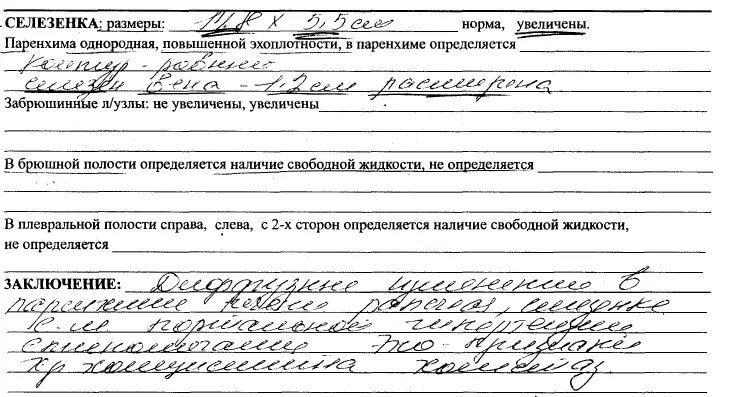 СЕЛЕЗЕНКА: размеры: 11,8 х 5,5 см норма, увеличены.
Паренхима однородная, повышенной эхоплотности, в паренхиме определяется
контур - ровный
селезен вена - 1,2 см расширена
Забрюшинные л/узлы: не увеличены, увеличены
В брюшной полости определяется наличие свободной жидкости, не определяется
В плевральной полости справа, слева, с 2-х сторон определяется наличие свободной жидкости,
не определяется
ЗАКЛЮЧЕНИЕ: Диффузные изменения в
паренхиме печени
портальной гипертензии
спленомегалия Эхо-признаки
хр холецистита холестаз